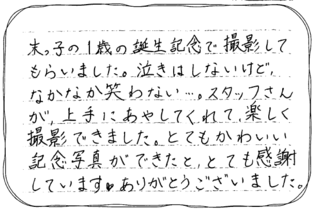 末っ子の1歳の誕生記念で撮影して
もらいました。泣きはしないけど、
なかなか笑わない…。スタッフさん
が、上手にあやしてくれて、楽しく
撮影できました。とてもかわいい
記念写真ができたと、とても感謝
しています♥ありがとうございました。